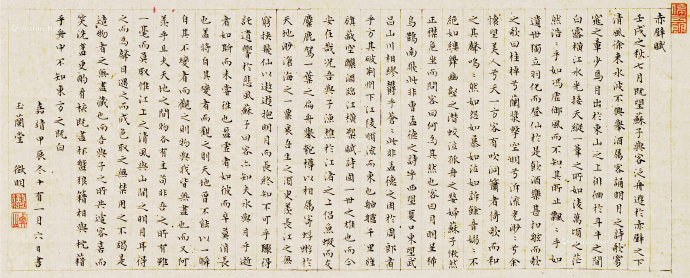 赤壁賦
壬戌之秋七月既望蘇子與客泛舟遊於赤壁之下
清風徐來水波不興舉酒属客誦明月之詩歌窈
窕之章少焉月出於東山之上徘徊於斗牛之間
白露橫江水光接天縱一葦之所如淩萬頃之茫
然浩浩乎如馮虛御風而不知其所止飄飄乎如
遺世獨立羽化而登仙於是飲酒樂甚扣舷而歌
之歌曰桂棹兮蘭槳擊空明兮泝流光渺渺兮余
懷望美人兮天一方客有吹洞簫者倚歌而和
之其聲嗚嗚然如怨如慕如泣如訴餘音嫋嫋不
絕如縷舞幽壑之潛蛟泣孤舟之嫠婦蘇子愀然
正襟危坐而問客曰何為其然也客曰月明星稀
烏鵲南飛此非曹孟德之詩乎西望夏口東望武
昌山川相繆鬱乎蒼蒼此非孟德之困于周郎者
乎方其破荊州下江陵順流而東也舳艫千里旌
旗蔽空釃酒臨江橫槊賦詩固一世之雄也而今
安在哉況吾與子漁樵于江渚之上侶魚蝦而友
麋鹿駕一葉之扁舟舉匏樽以相屬寄蜉蝣於
天地渺滄海之一粟哀吾生之須臾羨長江之無
窮挾飛仙以遨遊抱明月而長終知不可乎驟得
託遺響於悲風蘇子曰客亦知夫水與月乎逝
者如斯而未嘗往也盈虛者如彼而卒莫消長
也蓋將自其變者而觀之則天地曾不能以一瞬
自其不變者而觀之則物與我皆無盡也而又何
羨乎且夫天地之間物各有主苟非吾之所有雖
一毫而莫取惟江上之清風與山間之明月耳得
之而為聲目遇之而成色取之無禁用之不竭是
造物者之無盡藏也而吾與子之所共適客喜而
笑洗盞更酌肴核既盡杯盤狼藉相與枕藉
乎舟中不知東方之既白
嘉靖甲辰冬十有一月六日書
玉蘭堂 徵明